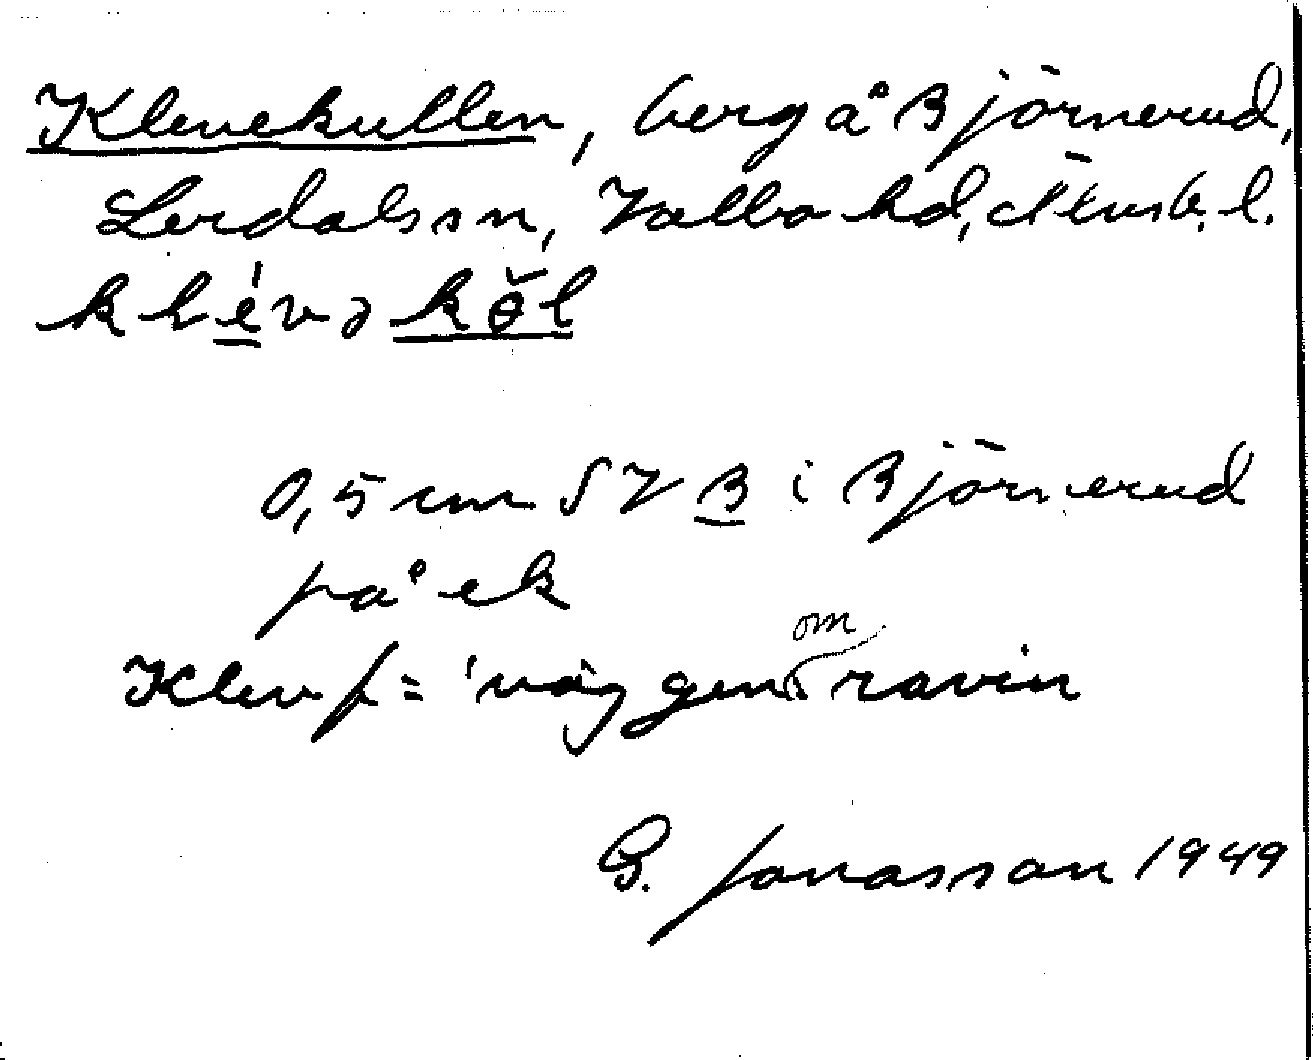 Klevekullen, berg å Björnerud,
Lerdals sn, Valbo hd, Älvsb. l.
klévə kɵ̆l
0,5 cm SV B i Björnerud
på ek
Klev f = 'väg genom ravin
G. Jonasson 1949